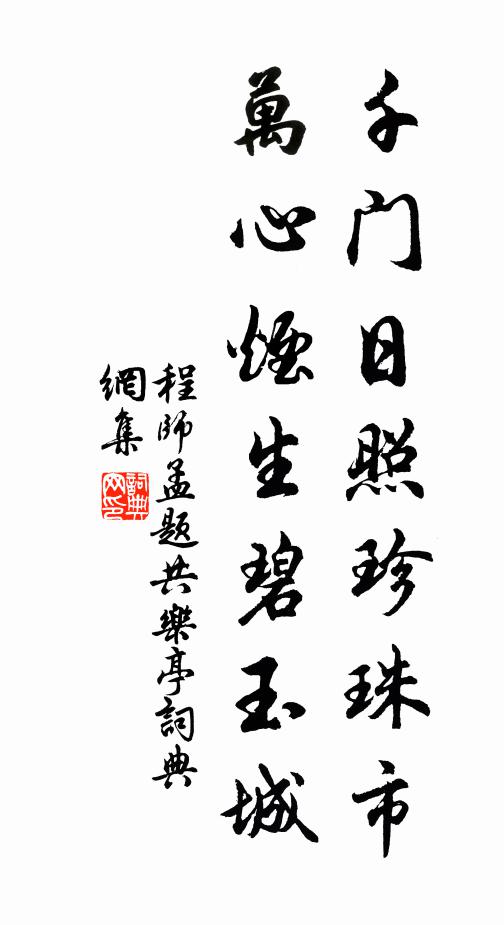 千门日照珍珠市
萬心煙生碧玉城
程師孟题共樂亭詞典
網集
詞典
网印